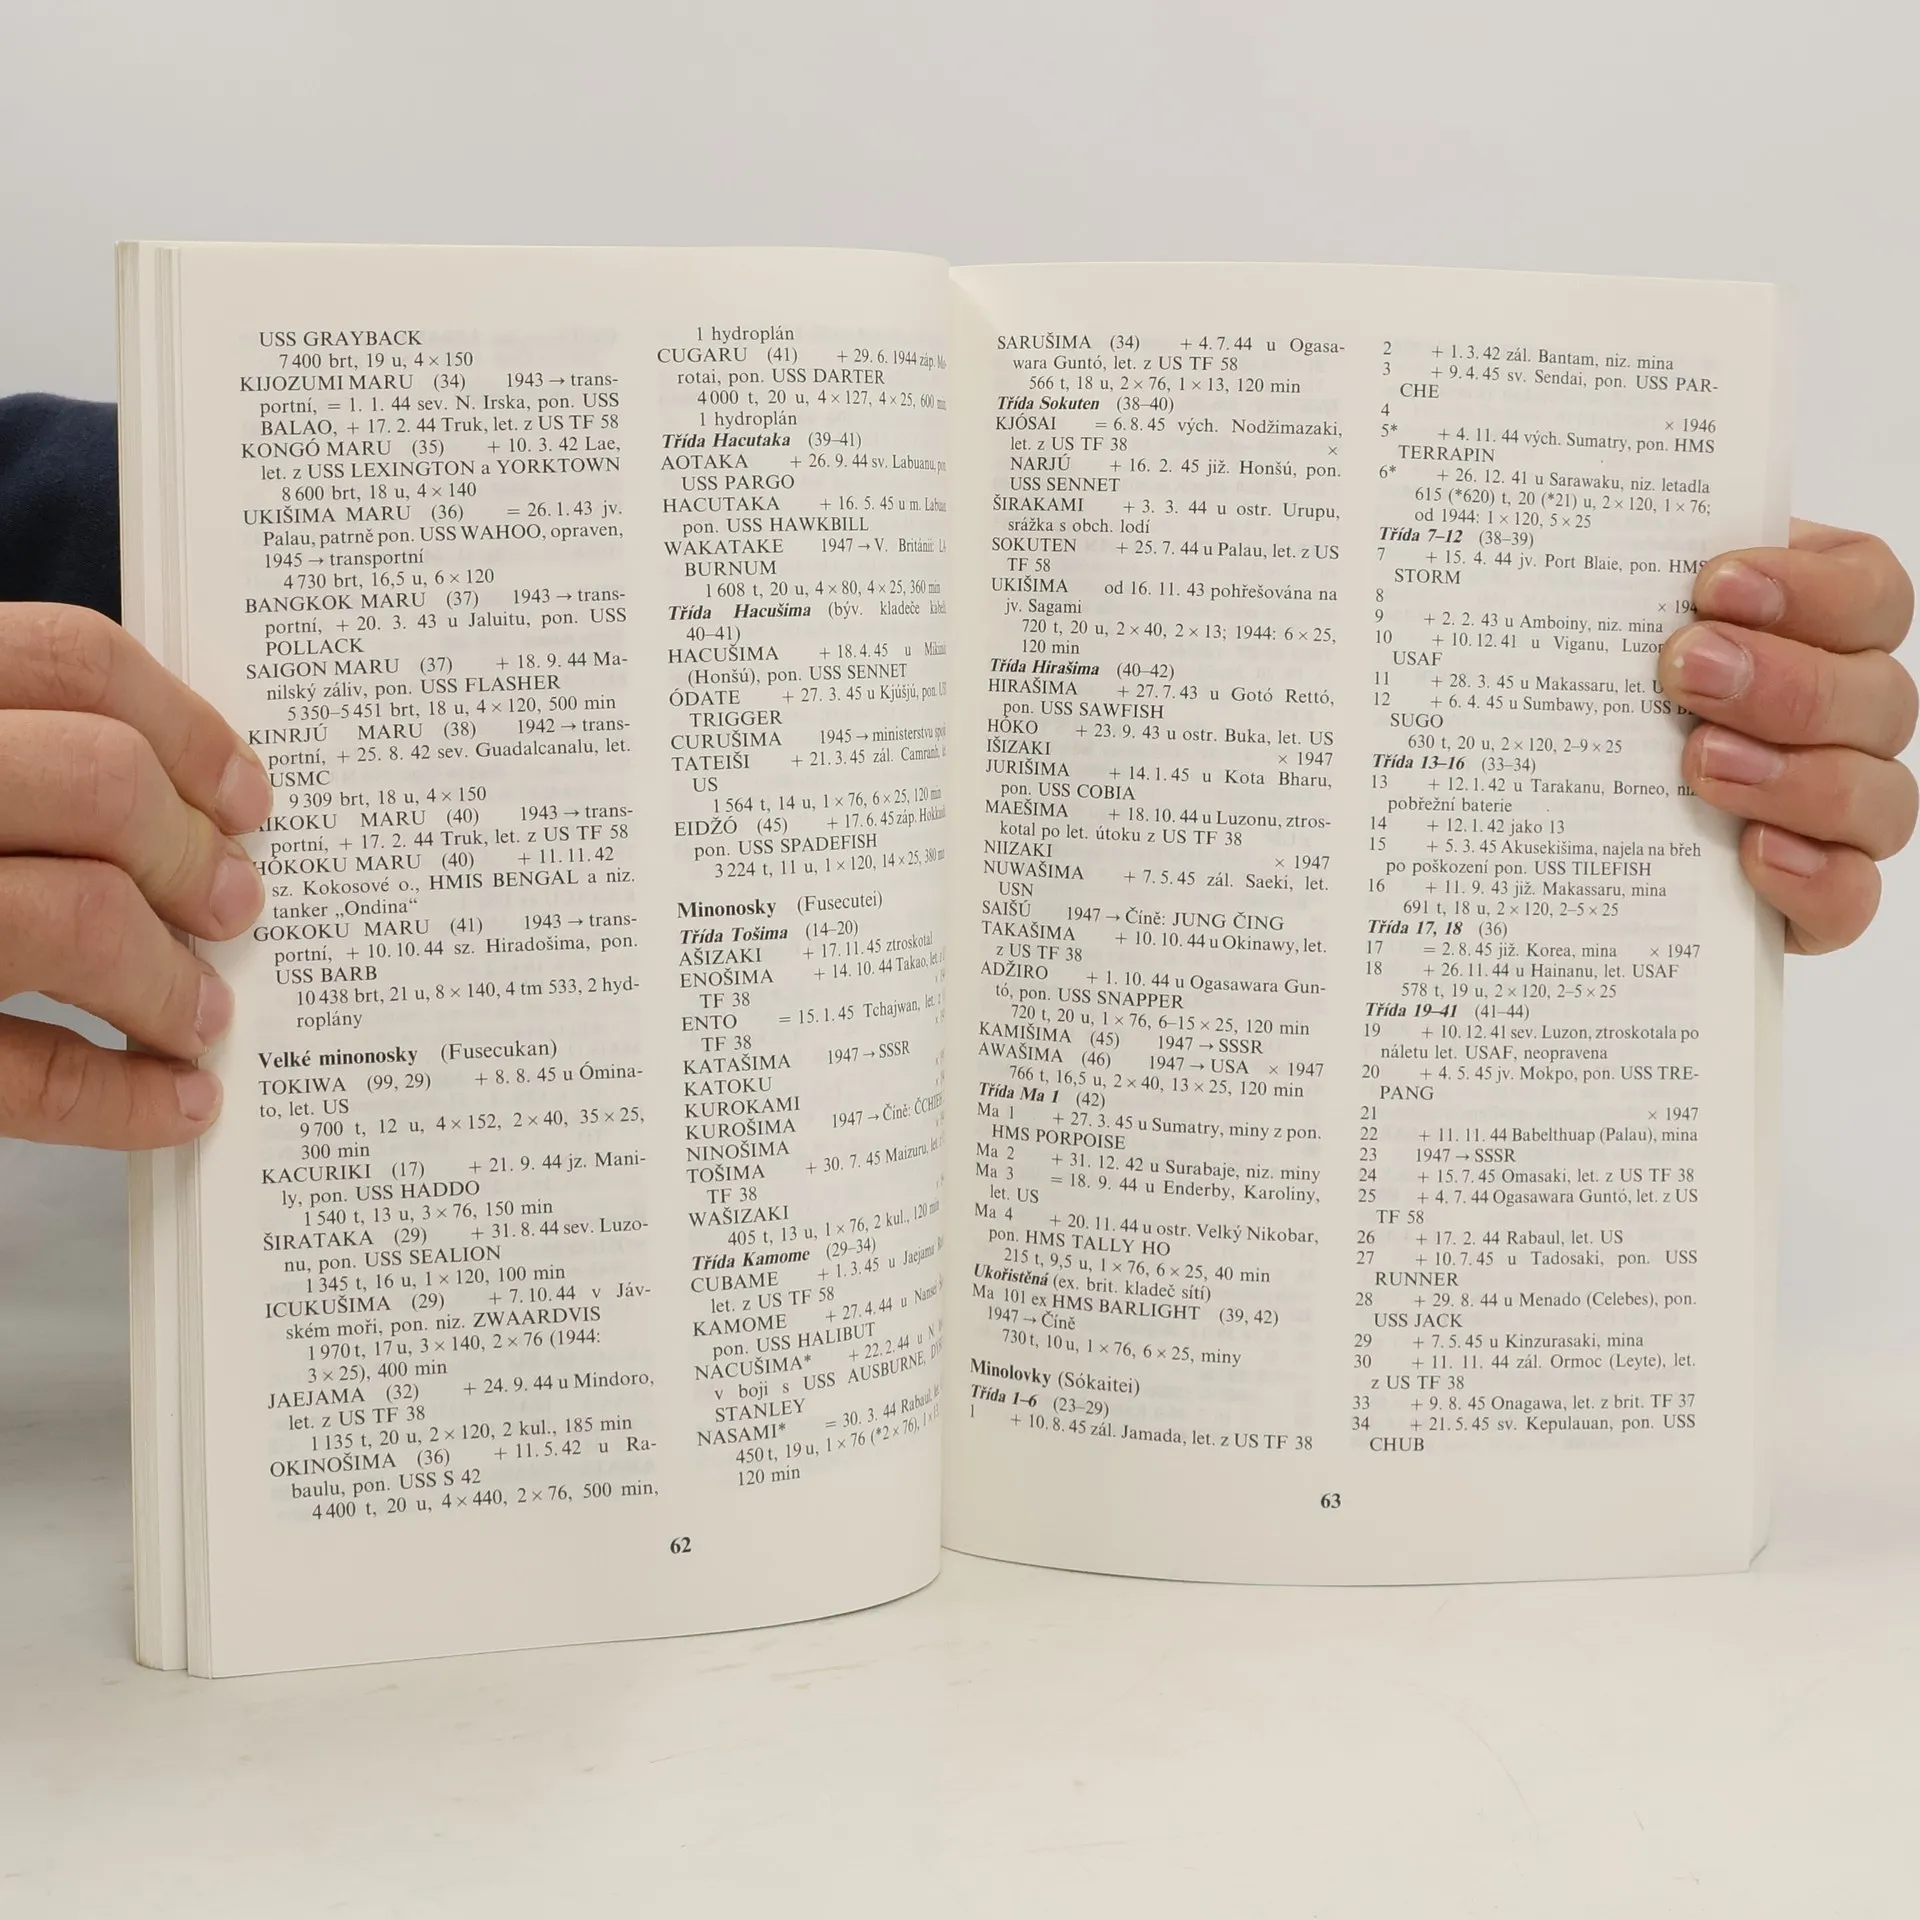 USS GRAYBACK
7 400 brt, 19 u, 4 × 150
KIJOZUMI MARU (34) 1943 → trans-
portní, = 1. 1. 44 sev. N. Irska, pon. USS
BALAO, + 17. 2. 44 Truk, let. z US TF 58
KONGÓ MARU (35) + 10. 3. 42 Lae,
let. z USS LEXINGTON a YORKTOWN
8 600 brt, 18 u, 4 × 140
UKIŠIMA MARU (36) = 26. 1. 43 jv.
Palau, patrně pon. USS WAHOO, opraven,
1945 → transportní
4 730 brt, 16,5 u, 6 × 120
BANGKOK MARU (37) 1943 → trans-
portní, + 20. 3. 43 u Jaluitu, pon. USS
POLLACK
SAIGON MARU (37) + 18. 9. 44 Ma-
nilský záliv, pon. USS FLASHER
5 350–5 451 brt, 18 u, 4 × 120, 500 min
KINRJÚ MARU (38) 1942 → trans-
portní, + 25. 8. 42 sev. Guadalcanalu, let.
USMC
9 309 brt, 18 u, 4 × 150
MARU (40) 1943 → trans-
portní, + 17. 2. 44 Truk, let. z US TF 58
HÓKOKU MARU (40) + 11. 11. 42
sz. Kokosové o., HMIS BENGAL a niz.
tanker „Ondina“
GOKOKU MARU (41) 1943 → trans-
portní, + 10. 10. 44 sz. Hiradošima, pon.
USS BARB
10 438 brt, 21 u, 8 × 140, 4 tm 533, 2 hyd-
roplány
Velké minonosky (Fusecukan)
TOKIWA (99, 29) + 8. 8. 45 u Ómina-
to, let. US
9 700 t, 12 u, 4 × 152, 2 × 40, 35 × 25,
300 min
KACURIKI (17) + 21. 9. 44 jz. Mani-
ly, pon. USS HADDO
1 540 t, 13 u, 3 × 76, 150 min
ŠIRATAKA (29) + 31. 8. 44 sev. Luzo-
nu, pon. USS SEALION
1 345 t, 16 u, 1 × 120, 100 min
ICUKUŠIMA (29) + 7. 10. 44 v Jáv-
ském moři, pon. niz. ZWAARDVIS
1 970 t, 17 u, 3 × 140, 2 × 76 (1944:
3 × 25), 400 min
JAEJAMA (32) + 24. 9. 44 u Mindoro,
let. z US TF 38
1 135 t, 20 u, 2 × 120, 2 kul., 185 min
OKINOŠIMA (36) + 11. 5. 42 u Ra-
baulu, pon. USS S 42
4 400 t, 20 u, 4 × 440, 2 × 76, 500 min,
1 hydroplán
CUGARU (41) + 29. 6. 1944 záp. Mo-
rotai, pon. USS DARTER
4 000 t, 20 u, 4 × 127, 4 × 25, 600
1 hydroplán
Třída Hacutaka (39–41)
AOTAKA + 26. 9. 44 sv. Labuanu,
USS PARGO
HACUTAKA + 16. 5. 45 u m.
pon. USS HAWKBILL
WAKATAKE 1947 → V. Británii:
BURNUM
1 608 t, 20 u, 4 × 80, 4 × 25, 360 min
Třída Hacušima (býv. kladeče
40–41)
HACUŠIMA + 18. 4. 45 u
(Honšú), pon. USS SENNET
ÓDATE + 27. 3. 45 u Kjúšjú, pon.
TRIGGER
CURUŠIMA 1945 → ministerstvu
TATEIŠI + 21. 3. 45 zál. Camranh,
US
1 564 t, 14 u, 1 × 76, 6 × 25, 120 min
EIDŽÓ (45) + 17. 6. 45 záp.
pon. USS SPADEFISH
3 224 t, 11 u, 1 × 120, 14 × 25, 380
Minonosky (Fusecutei)
Třída Tošima (14–20)
AŠIZAKI + 17. 11. 45 ztroskotal
ENOŠIMA + 14. 10. 44 Takao, let.
TF 38
ENTO = 15. 1. 45 Tchajwan, let.
TF 38
KATAŠIMA 1947 → SSSR
KATOKU
KUROKAMI
KUROŠIMA 1947 → Číně:
NINOŠIMA
TOŠIMA + 30. 7. 45 Maizuru,
TF 38
WAŠIZAKI
405 t, 13 u, 1 × 76, 2 kul., 120 min
Třída Kamome (29–34)
CUBAME + 1. 3. 45 u Jaejama
let. z US TF 58
KAMOME + 27. 4. 44 u
pon. USS HALIBUT
NACUŠIMA* + 22. 2. 44 u N.
v boji s USS AUSBURNE,
STANLEY
NASAMI* = 30. 3. 44 Rabaul,
450 t, 19 u, 1 × 76 (*2 × 76),
120 min
62
SARUŠIMA (34) + 4. 7. 44 u Ogasa-
wara Guntó, let. z US TF 58
566 t, 18 u, 2 × 76, 1 × 13, 120 min
Třída Sokuten (38–40)
KJÓSAI = 6. 8. 45 vých. Nodžimazaki,
let. z US TF 38 ×
NARJÚ + 16. 2. 45 již. Honšú, pon.
USS SENNET
ŠIRAKAMI + 3. 3. 44 u ostr. Urupu,
srážka s obch. lodí
SOKUTEN + 25. 7. 44 u Palau, let. z US
TF 58
UKIŠIMA od 16. 11. 43 pohřešována na
jv. Sagami
720 t, 20 u, 2 × 40, 2 × 13; 1944: 6 × 25,
120 min
Třída Hirašima (40–42)
HIRAŠIMA + 27. 7. 43 u Gotó Rettó,
pon. USS SAWFISH
HÓKO + 23. 9. 43 u ostr. Buka, let. US
IŠIZAKI × 1947
JURIŠIMA + 14. 1. 45 u Kota Bharu,
pon. USS COBIA
MAEŠIMA + 18. 10. 44 u Luzonu, ztros-
kotal po let. útoku z US TF 38
NIIZAKI × 1947
NUWAŠIMA + 7. 5. 45 zál. Saeki, let.
USN
SAIŠÚ 1947 → Číně: JUNG ČING
TAKAŠIMA + 10. 10. 44 u Okinawy, let.
z US TF 38
ADŽIRO + 1. 10. 44 u Ogasawara Gun-
tó, pon. USS SNAPPER
720 t, 20 u, 1 × 76, 6–15 × 25, 120 min
KAMIŠIMA (45) 1947 → SSSR
AWAŠIMA (46) 1947 → USA × 1947
766 t, 16,5 u, 2 × 40, 13 × 25, 120 min
Třída Ma 1 (42)
Ma 1 + 27. 3. 45 u Sumatry, miny z pon.
HMS PORPOISE
Ma 2 + 31. 12. 42 u Surabaje, niz. miny
Ma 3 = 18. 9. 44 u Enderby, Karoliny,
let. US
Ma 4 + 20. 11. 44 u ostr. Velký Nikobar,
pon. HMS TALLY HO
215 t, 9,5 u, 1 × 76, 6 × 25, 40 min
Ukořistěná (ex. brit. kladeč sítí)
Ma 101 ex HMS BARLIGHT (39, 42)
1947 → Číně
730 t, 10 u, 1 × 76, 6 × 25, miny
Minolovky (Sókaitei)
Třída 1–6 (23–29)
1 + 10. 8. 45 zál. Jamada, let. z US TF 38
2 + 1. 3. 42 zál. Bantam, niz. mina
3 + 9. 4. 45 sv. Sendai, pon. USS PAR-
CHE
4 × 1946
5* + 4. 11. 44 vých. Sumatry, pon. HMS
TERRAPIN
6* + 26. 12. 41 u Sarawaku, niz. letadla
615 (*620) t, 20 (*21) u, 2 × 120, 1 × 76;
od 1944: 1 × 120, 5 × 25
Třída 7–12 (38–39)
7 + 15. 4. 44 jv. Port Blaie, pon. HMS
STORM
8 ×
9 + 2. 2. 43 u Amboiny, niz. mina
10 + 10. 12. 41 u Viganu,
USAF
11 + 28. 3. 45 u Makassaru, let.
12 + 6. 4. 45 u Sumbawy, pon. USS
SUGO
630 t, 20 u, 2 × 120, 2–9 × 25
Třída 13–16 (33–34)
13 + 12. 1. 42 u Tarakanu, Borneo,
pobřežní baterie
14 + 12. 1. 42 jako 13
15 + 5. 3. 45 Akusekišima, najela na břeh
po poškození pon. USS TILEFISH
16 + 11. 9. 43 již. Makassaru, mina
691 t, 18 u, 2 × 120, 2–5 × 25
Třída 17, 18 (36)
17 = 2. 8. 45 již. Korea, mina × 1947
18 + 26. 11. 44 u Hainanu, let. USAF
578 t, 19 u, 2 × 120, 2–5 × 25
Třída 19–41 (41–44)
19 + 10. 12. 41 sev. Luzon, ztroskotala po
náletu let. USAF, neopravena
20 + 4. 5. 45 jv. Mokpo, pon. USS TRE-
PANG
21 × 1947
22 + 11. 11. 44 Babelthuap (Palau), mina
23 1947 → SSSR
24 + 15. 7. 45 Omasaki, let. z US TF 38
25 + 4. 7. 44 Ogasawara Guntó, let. z US
TF 58
26 + 17. 2. 44 Rabaul, let. US
27 + 10. 7. 45 u Tadosaki, pon. USS
RUNNER
28 + 29. 8. 44 u Menado (Celebes), pon.
USS JACK
29 + 7. 5. 45 u Kinzurasaki, mina
30 + 11. 11. 44 zál. Ormoc (Leyte), let.
z US TF 38
33 + 9. 8. 45 Onagawa, let. z brit. TF 37
34 + 21. 5. 45 sv. Kepulauan, pon. USS
CHUB
63